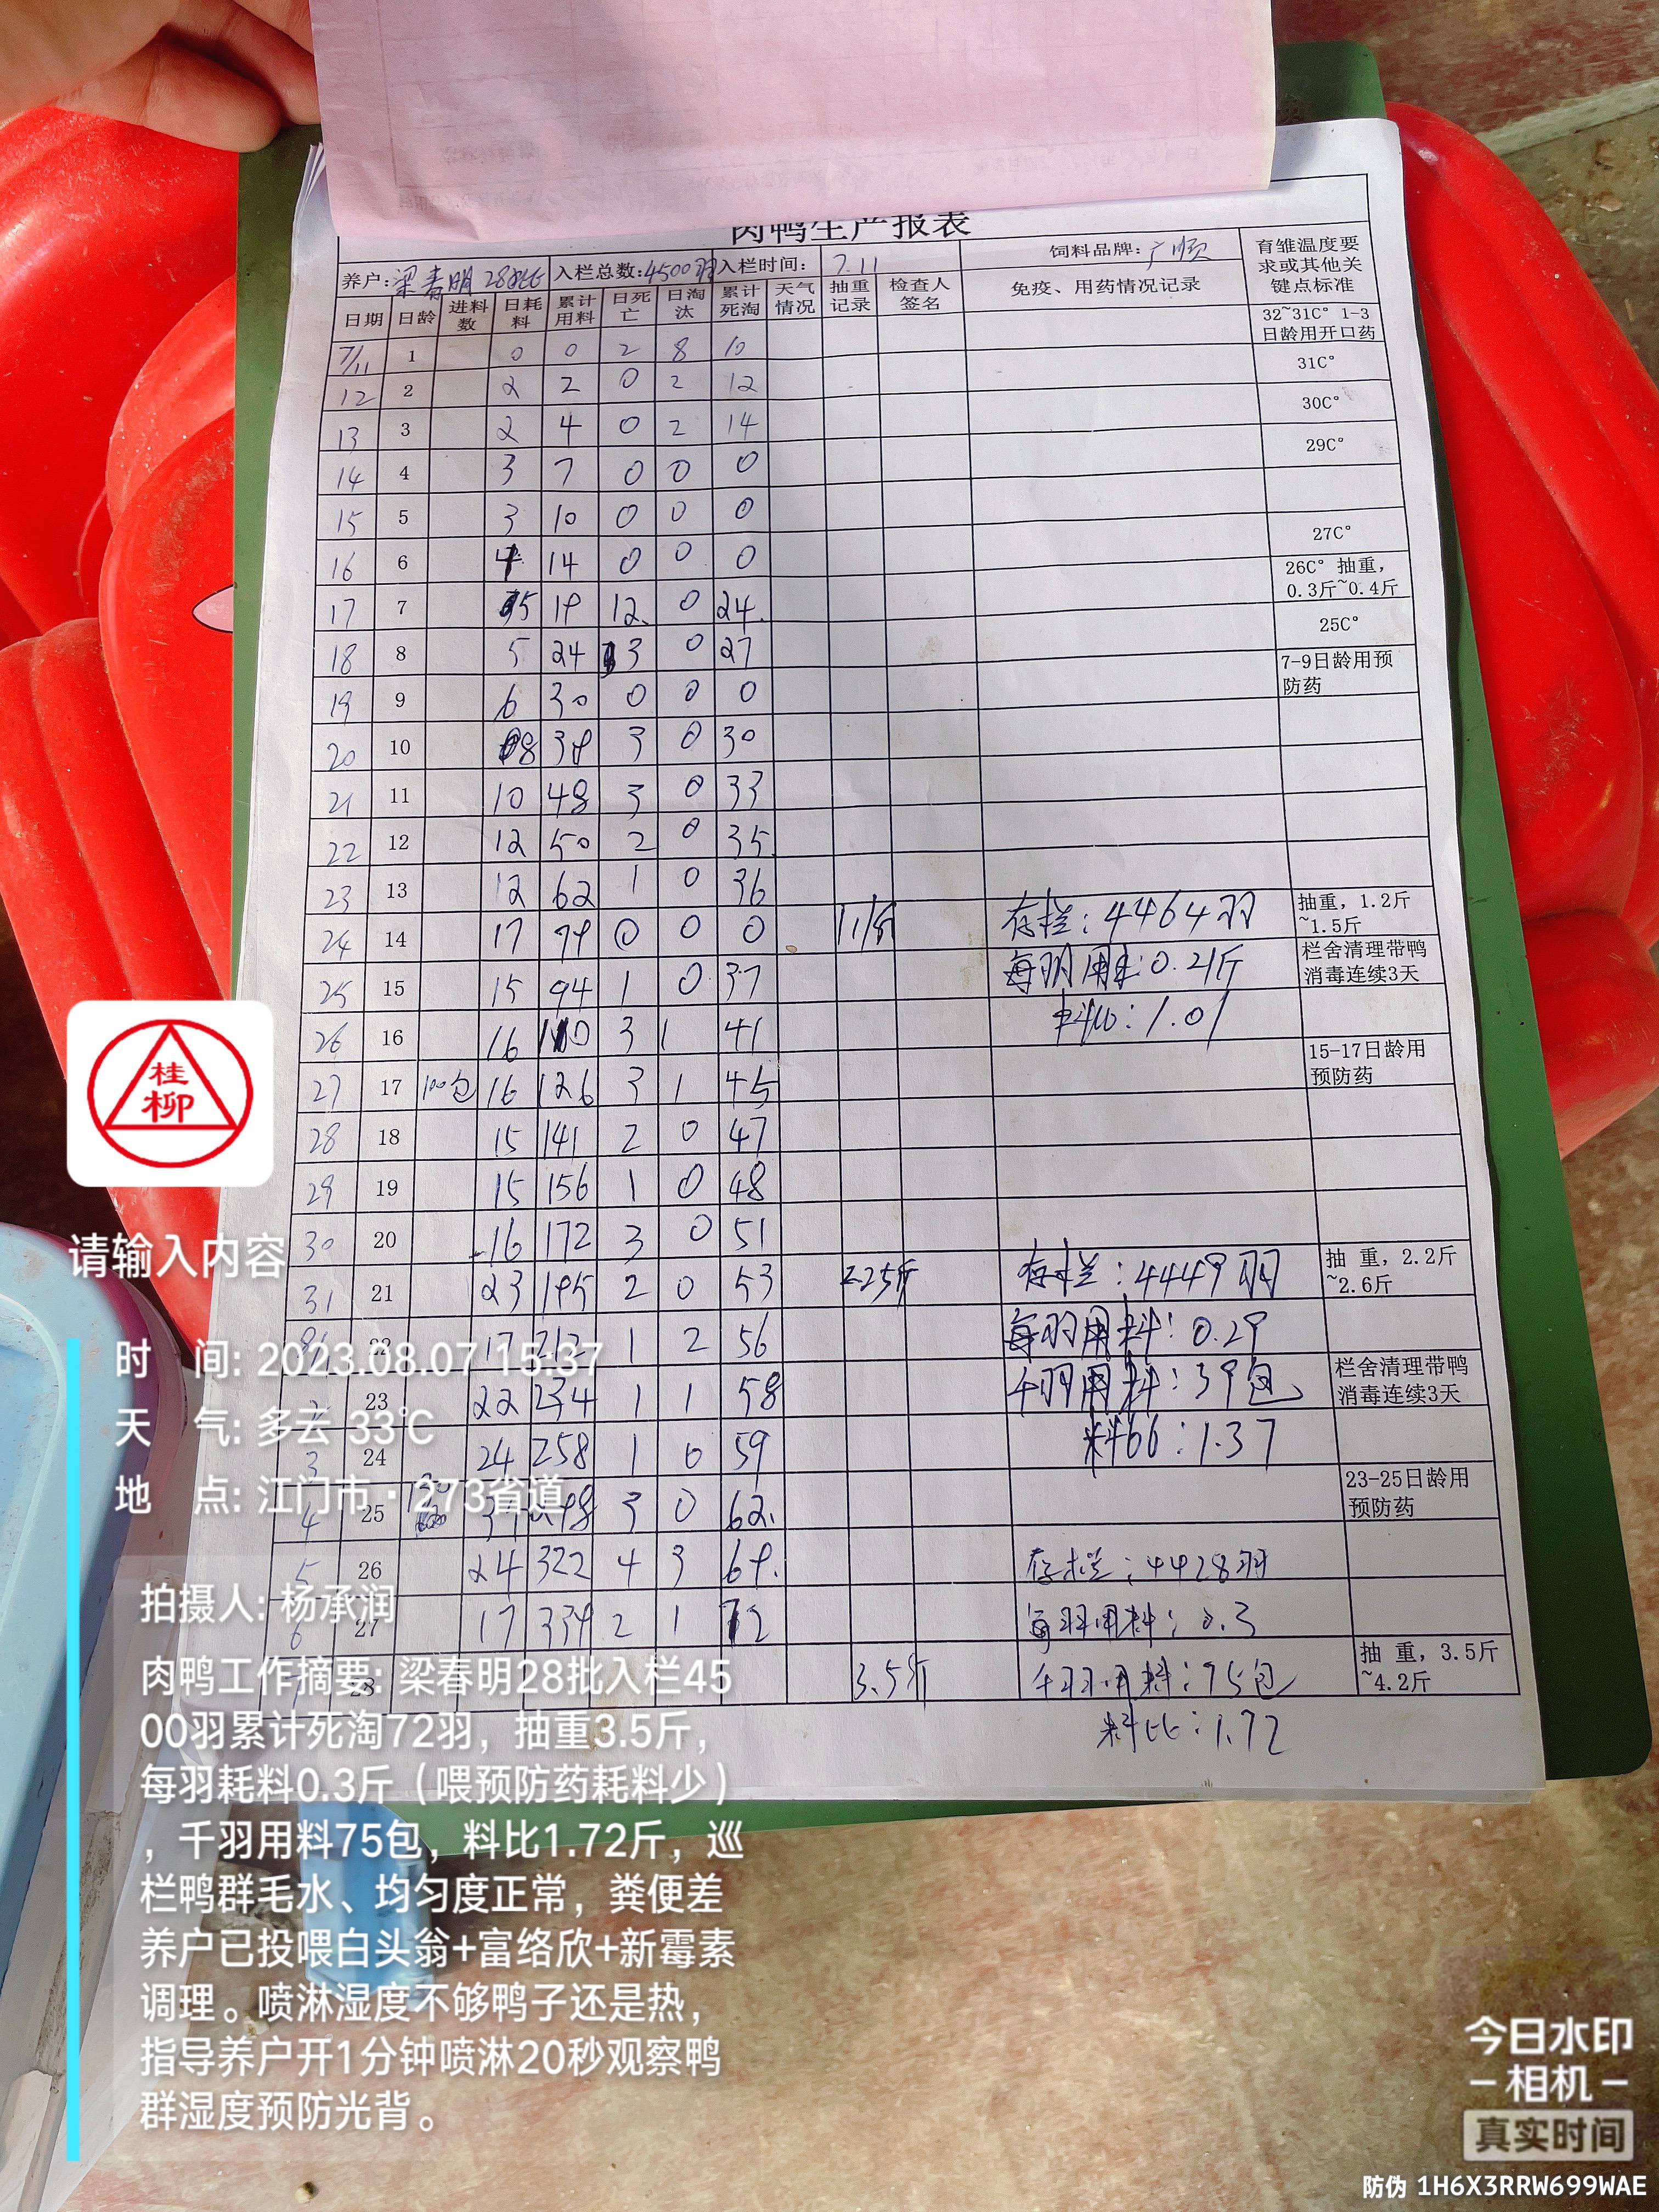 肉鸭生产报表
养户: 梁春明 28批 入栏总数: 4500羽 入栏时间: 7.11 饲料品牌: 广顺 育雏温度要求或其他关键点标准
日期 日龄 进料数 日耗料 累计用料 日死亡 日淘汰 累计死淘 天气情况 抽重记录 检查人签名 免疫、用药情况记录
7/11 1 0 0 2 8 10 32~31C° 1-3日龄用开口药
12 2 2 2 0 2 12 31C°
13 3 2 4 0 2 14 30C°
14 4 3 7 0 0 0 29C°
15 5 3 10 0 0 0
16 6 4 14 0 0 0 27C°
17 7 5 19 12 0 24. 26C° 抽重，0.3斤~0.4斤
18 8 5 24 3 0 27 25C°
19 9 6 30 0 0 0 7-9日龄用预防药
20 10 8 38 3 0 30
21 11 10 48 3 0 33
22 12 12 50 2 0 35
23 13 12 62 1 0 36
24 14 17 79 0 0 0 1.1斤 存栏: 4464羽 抽重，1.2斤~1.5斤
25 15 15 94 1 0 37 每羽用料: 0.21斤 栏舍清理带鸭消毒连续3天
26 16 16 110 3 1 41 料比: 1.01
27 17 100包 16 126 3 1 45 15-17日龄用预防药
28 18 15 141 2 0 47
29 19 15 156 1 0 48
30 20 16 172 3 0 51
31 21 23 195 2 0 53 2.25斤 存栏: 4449羽 抽 重，2.2斤~2.6斤
22 17 212 1 2 56 每羽用料: 0.29
2 23 22 234 1 1 58 千羽用料: 39包 栏舍清理带鸭消毒连续3天
3 24 24 258 1 0 59 料比: 1.37
4 25 298 3 0 62. 23-25日龄用预防药
5 26 24 322 4 3 69.
存栏: 4428羽
6 27 17 339 2 1 72 每羽用料: 0.3
28 3.5斤 千羽用料: 75包 抽 重，3.5斤~4.2斤
料比: 1.72
桂
柳
请输入内容
时 间: 2023.08.07 15:37
天 气: 多云 33℃
地 点: 江门市·273省道
拍摄人: 杨承润
肉鸭工作摘要: 梁春明28批入栏45
00羽累计死淘72羽，抽重3.5斤，
每羽耗料0.3斤（喂预防药耗料少）
，千羽用料75包，料比1.72斤，巡
栏鸭群毛水、均匀度正常，粪便差
养户已投喂白头翁+富络欣+新霉素
调理。喷淋湿度不够鸭子还是热，
指导养户开1分钟喷淋20秒观察鸭
群湿度预防光背。
今日水印
相机
真实时间
防伪 1H6X3RRW699WAE